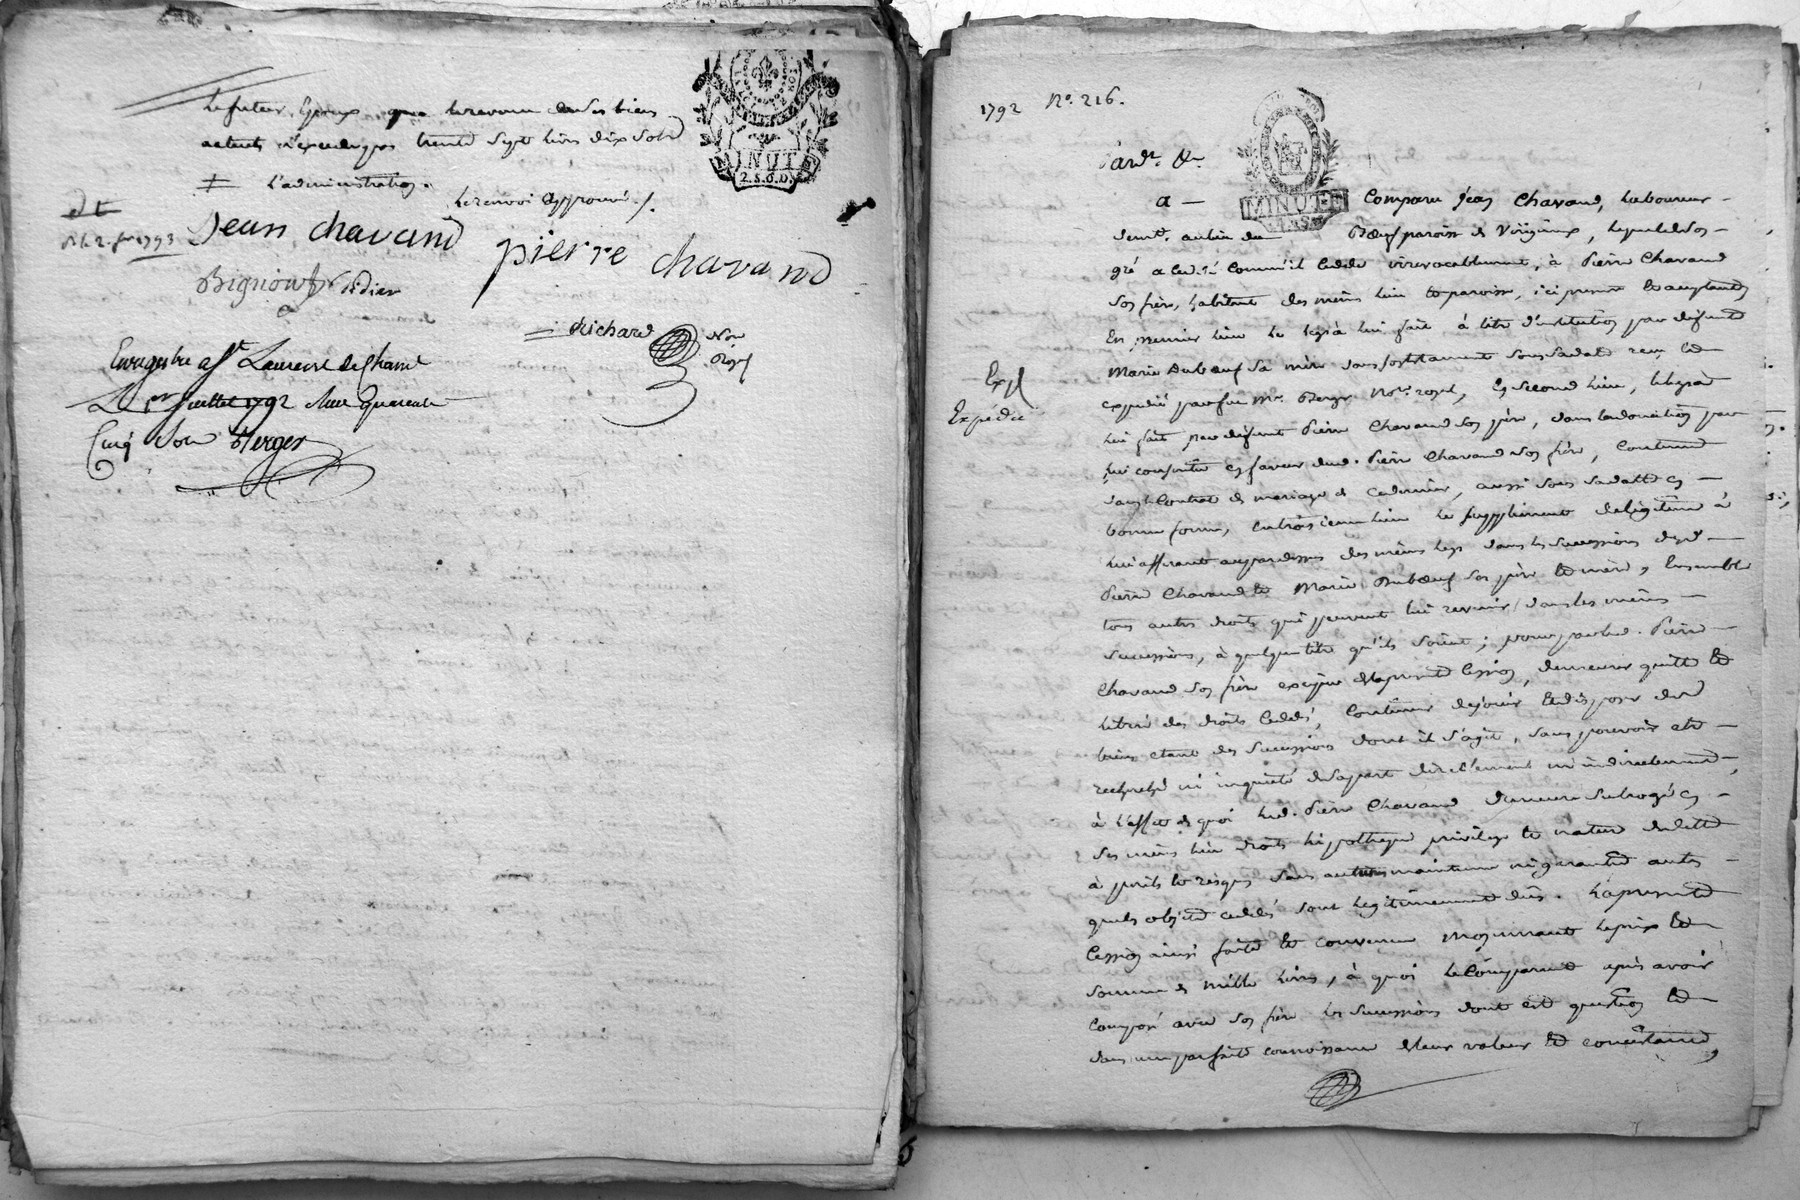 Le futur Epoux que le revenu de ses biens
actuels n'excede pas trente sept livres dix sols
‡ L'administration.
le renvoi approuvé ./.
Jean chavand
pierre chavand
Didier
Richard
Not
Royal
Enregistré a St Laurent de Chamt
Le 1er Juillet 1792 Reçu quarante
Cinq sols Berger
MINUTE
2.S.6.D.
1792 No. 216.
Pardt. &a.
MINUTE
a — Comparu Jean Chavand, Laboureur —
demt. au lieu du Boeuf paroisse de Virigneux, lequel de son —
gré a cedé comme il cedde irrevocablement, à Pierre Chavand
son frère, habitant des mêmes lieu & paroisse, ici present & acceptant
En premier lieu le legs à lui fait à titre d'institution par defunte
Marie Duboeuf sa mère dans son testament sous sa datte reçu et
expedié par feu Me. Berger Nore. royal, En second lieu, le legs à
lui fait par defunt Pierre Chavand son père, dans la donation par
lui consentie en faveur dud. Pierre Chavand son frère, contenue
dans le Contrat de mariage de ce dernier, aussi sous sa datte en —
bonne forme, en troisieme lieu le supplement de legitime à
lui afferant au par dessus des mêmes legs dans les successions desd —
Pierre Chavand & Marie Duboeuf son père et mère, Ensemble
tous autres droits qui peuvent lui revenir dans les mêmes —
successions, à quelque titre qu'ils soient; pour par led. Pierre —
Chavand son frère au moyen de la presente cession, demeurer quitte et
liberé des droits ceddés, Continuer de jouir et disposer des
biens etant des successions dont il s'agit, sans pouvoir etre —
recherché ni inquieté de sa part directement ni indirectement —,
à l'effet de quoi led. Pierre Chavand demeure subrogé en —
ses mêmes lieu droits hippotheque privilege & nature de dette
à perils & risques sans autres maintenue ni garantie autres —
que les objets ceddés sont legitimement dûs. La presente
Cession ainsi faite et convenue moyennant le prix et
somme de mille livres, à quoi le Comparant après avoir
composé avec son frère les successions dont est question et
dans une parfaite connoissance de leur valeur et consistance,
Expl
Expedié